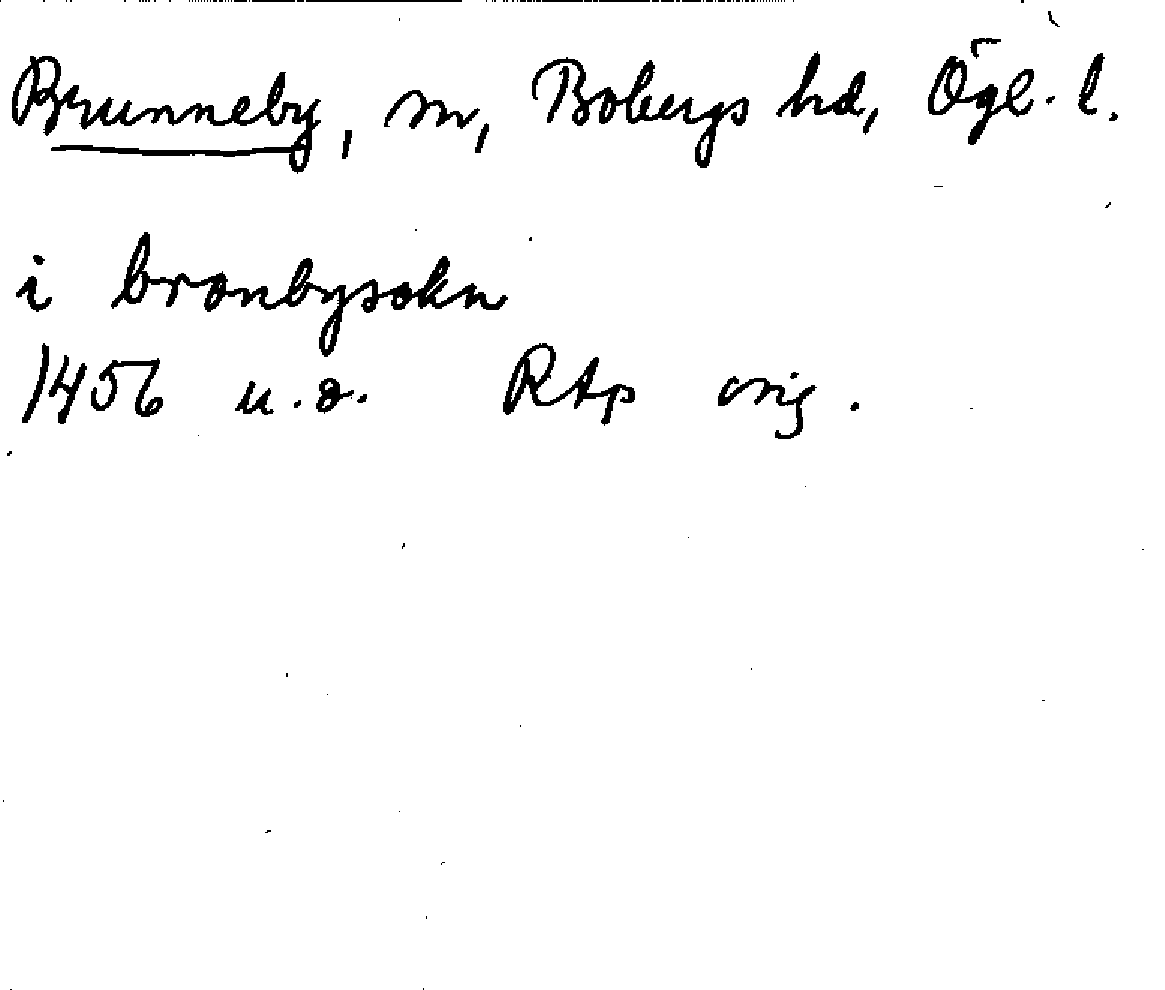 Brunneby, sn, Bobergs hd, Ögl. l.
i bronbysokn
1456 u.d. Rtp orig.